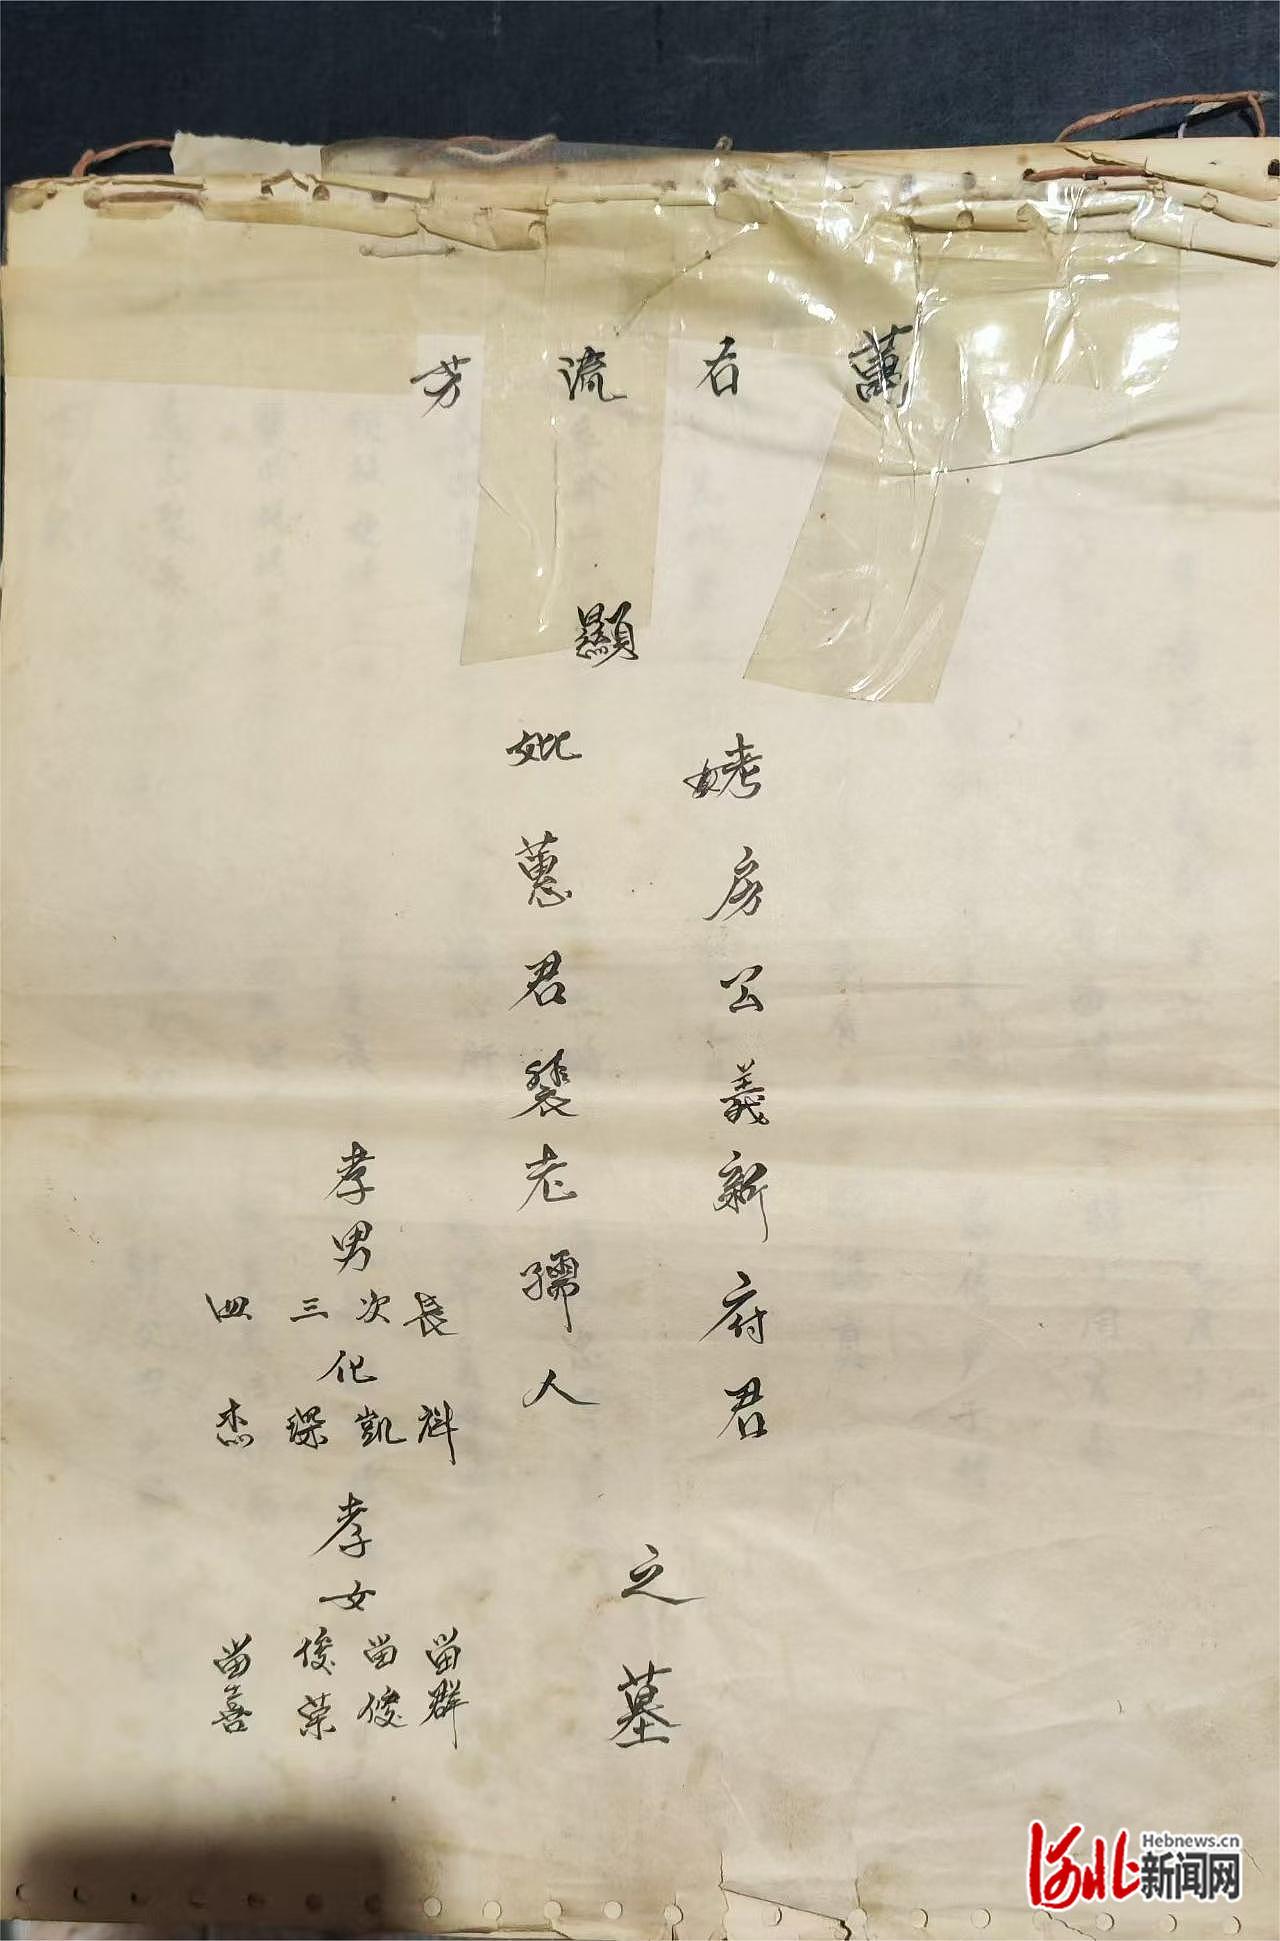 萬古流芳
顯
妣考房公義新府君
妣蕙君裴老孺人
之墓
孝男
長次三四
化
科凱琛杰
孝女
苗群
苗俊
俊荣
苗喜
Hebnews.cn
河北新闻网